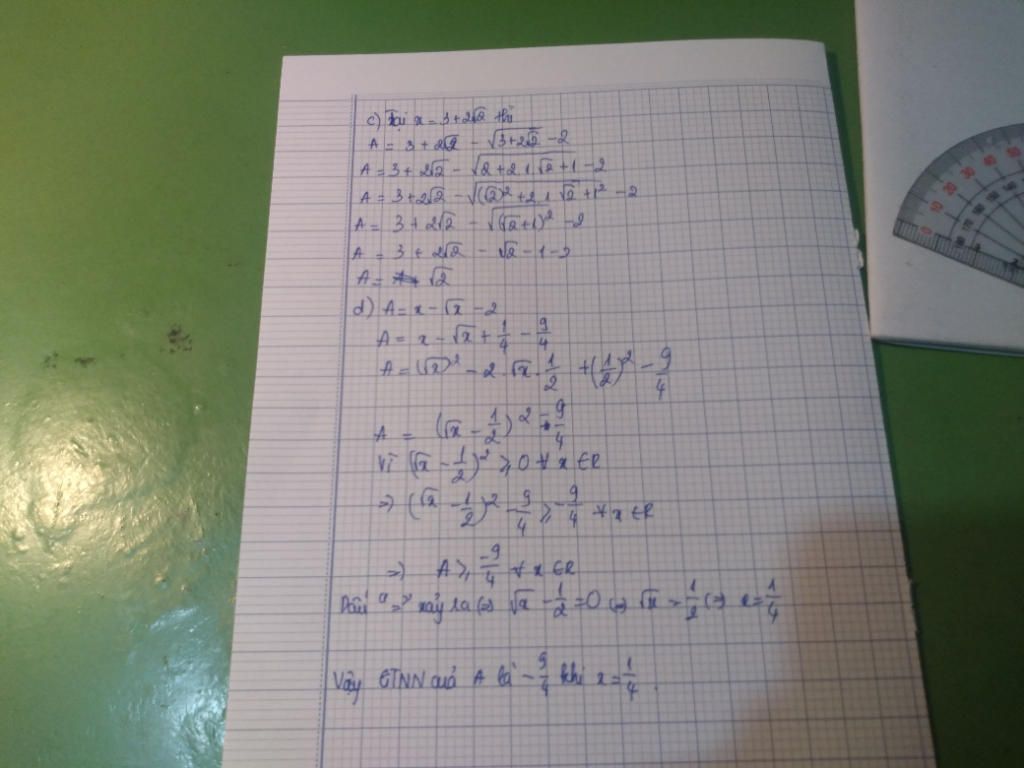 c) Tại x = 3+2√2 thì
A = 3 + 2√2 - √(3+2√2) - 2
A = 3 + 2√2 - √(2+2.1.√2+1) - 2
A = 3+2√2 - √((√2)²+2.1.√2+1²) - 2
A = 3 + 2√2 - √((√2+1)²) - 2
A = 3 + 2√2 - √2 - 1 - 2
A = √2
d) A = x - √x - 2
A = x - √x + 1/4 - 9/4
A = (√x)² - 2.√x.1/2 + (1/2)² - 9/4
A = (√x - 1/2)² - 9/4
Vì (√x - 1/2)² ≥ 0 ∀ x ∈ R
⇒ (√x - 1/2)² - 9/4 ≥ -9/4 ∀ x ∈ R
⇒ A ≥ -9/4 ∀ x ∈ R
Dấu "=" xảy ra ⇔ √x - 1/2 = 0 ⇔ √x = 1/2 ⇔ x = 1/4
Vậy GTNN của A là - 9/4 khi x = 1/4.